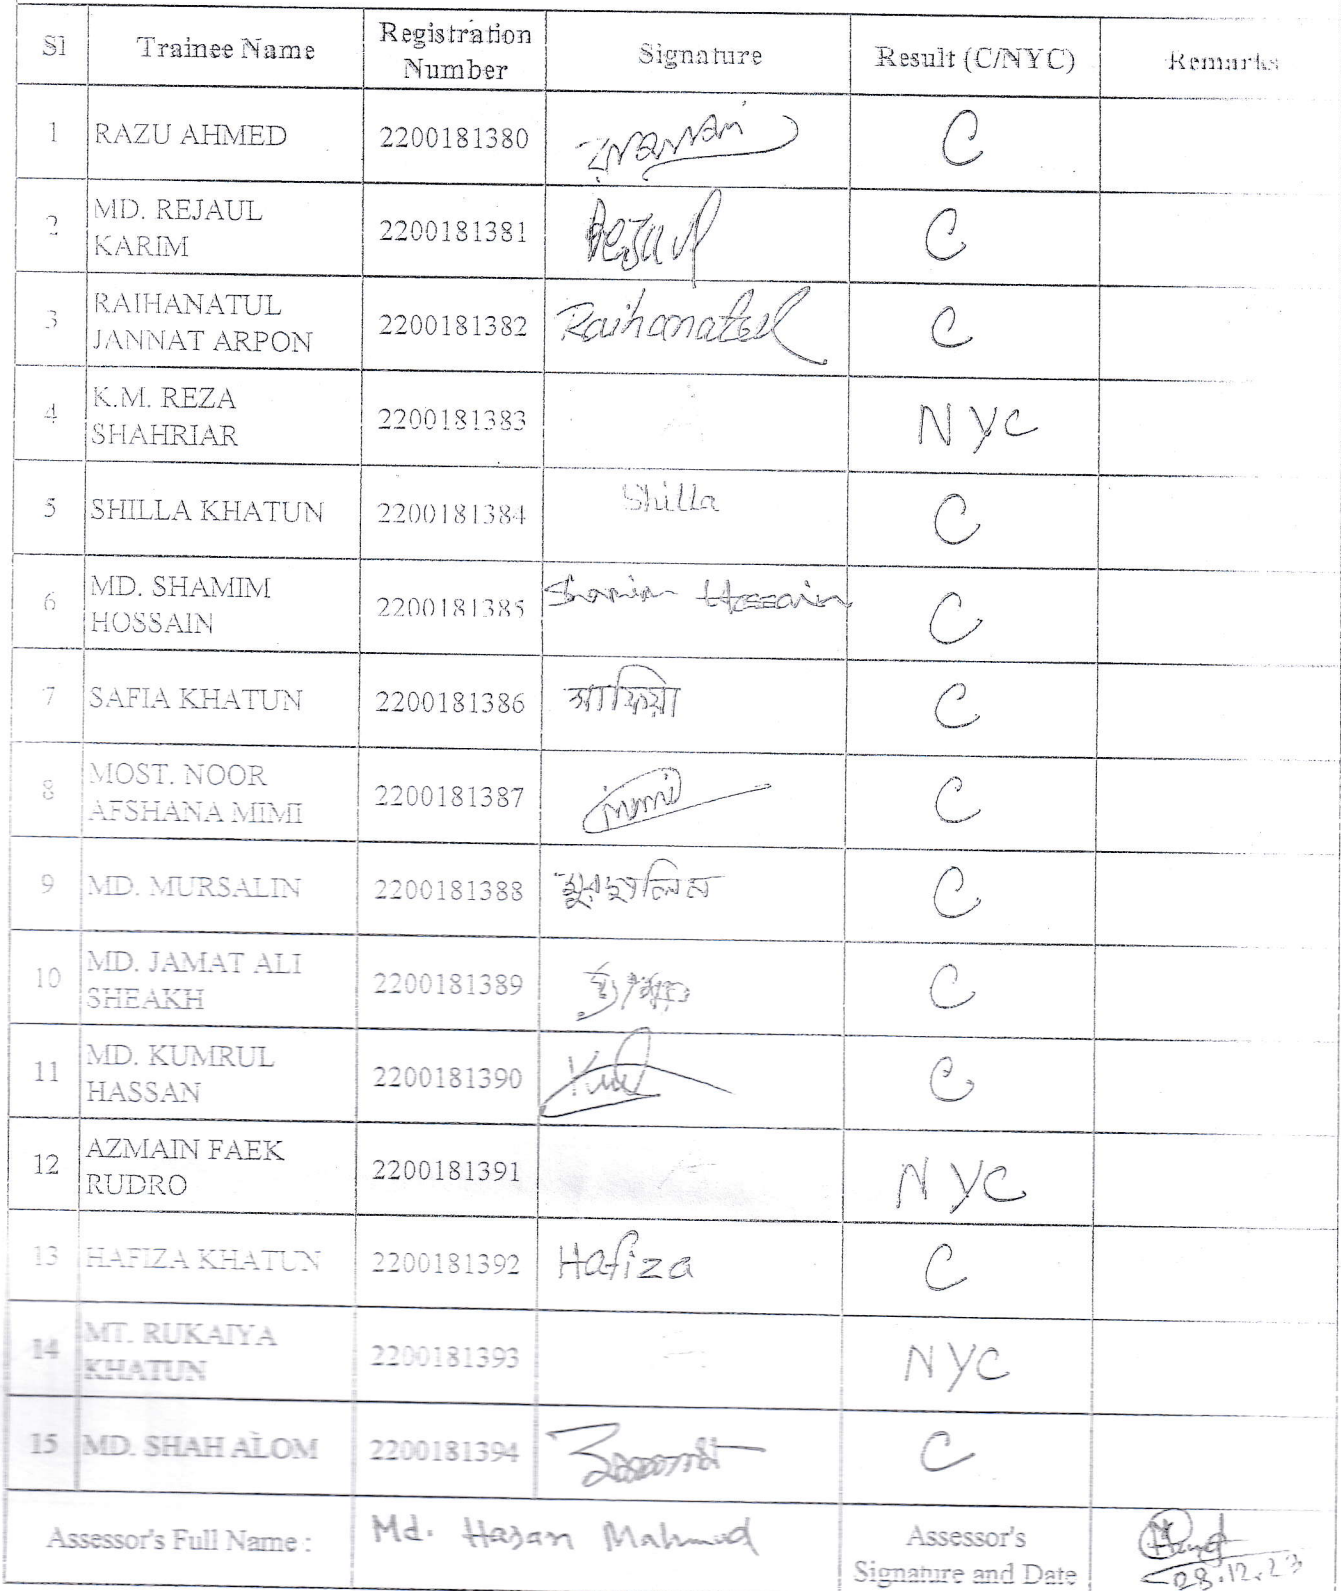 Sl Trainee Name Registration Number Signature Result (C/NYC) Remarks
1 RAZU AHMED 2200181380 C
2 MD. REJAUL KARIM 2200181381 Rejaul C
3 RAIHANATUL JANNAT ARPON 2200181382 Raihanatul C
4 K.M. REZA SHAHRIAR 2200181383 NYC
5 SHILLA KHATUN 2200181384 Shilla C
6 MD. SHAMIM HOSSAIN 2200181385 Shamim Hossain C
7 SAFIA KHATUN 2200181386 সাফিয়া C
8 MOST. NOOR AFSHANA MIMI 2200181387 mimi C
9 MD. MURSALIN 2200181388 মুরছালিন C
10 MD. JAMAT ALI SHEAKH 2200181389 C
11 MD. KUMRUL HASSAN 2200181390 C
12 AZMAIN FAEK RUDRO 2200181391 NYC
13 HAFIZA KHATUN 2200181392 Hafiza C
14 MT. RUKAIYA KHATUN 2200181393 NYC
15 MD. SHAH ALOM 2200181394 C
Assessor's Full Name : Md. Hasan Mahmud Assessor's Signature and Date 28.12.23